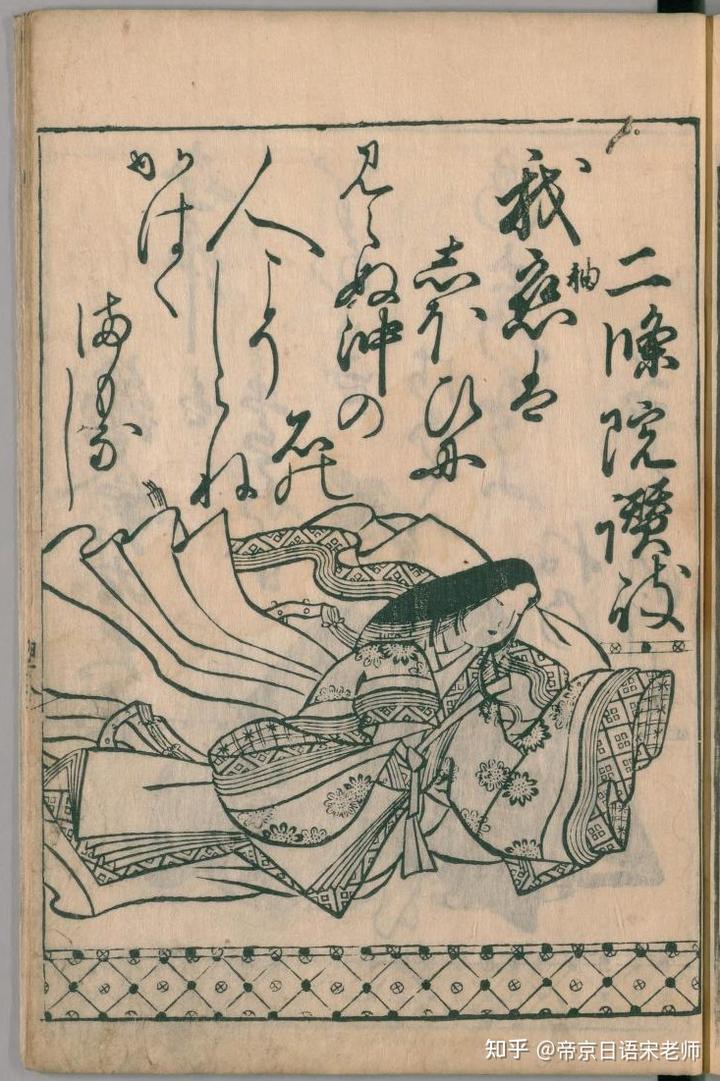 二條院讃岐
袖
我恋は
しほひに
見えぬ沖の
石の
人こそ
しらね
かはく
まもなし
知乎 @帝京日语宋老师